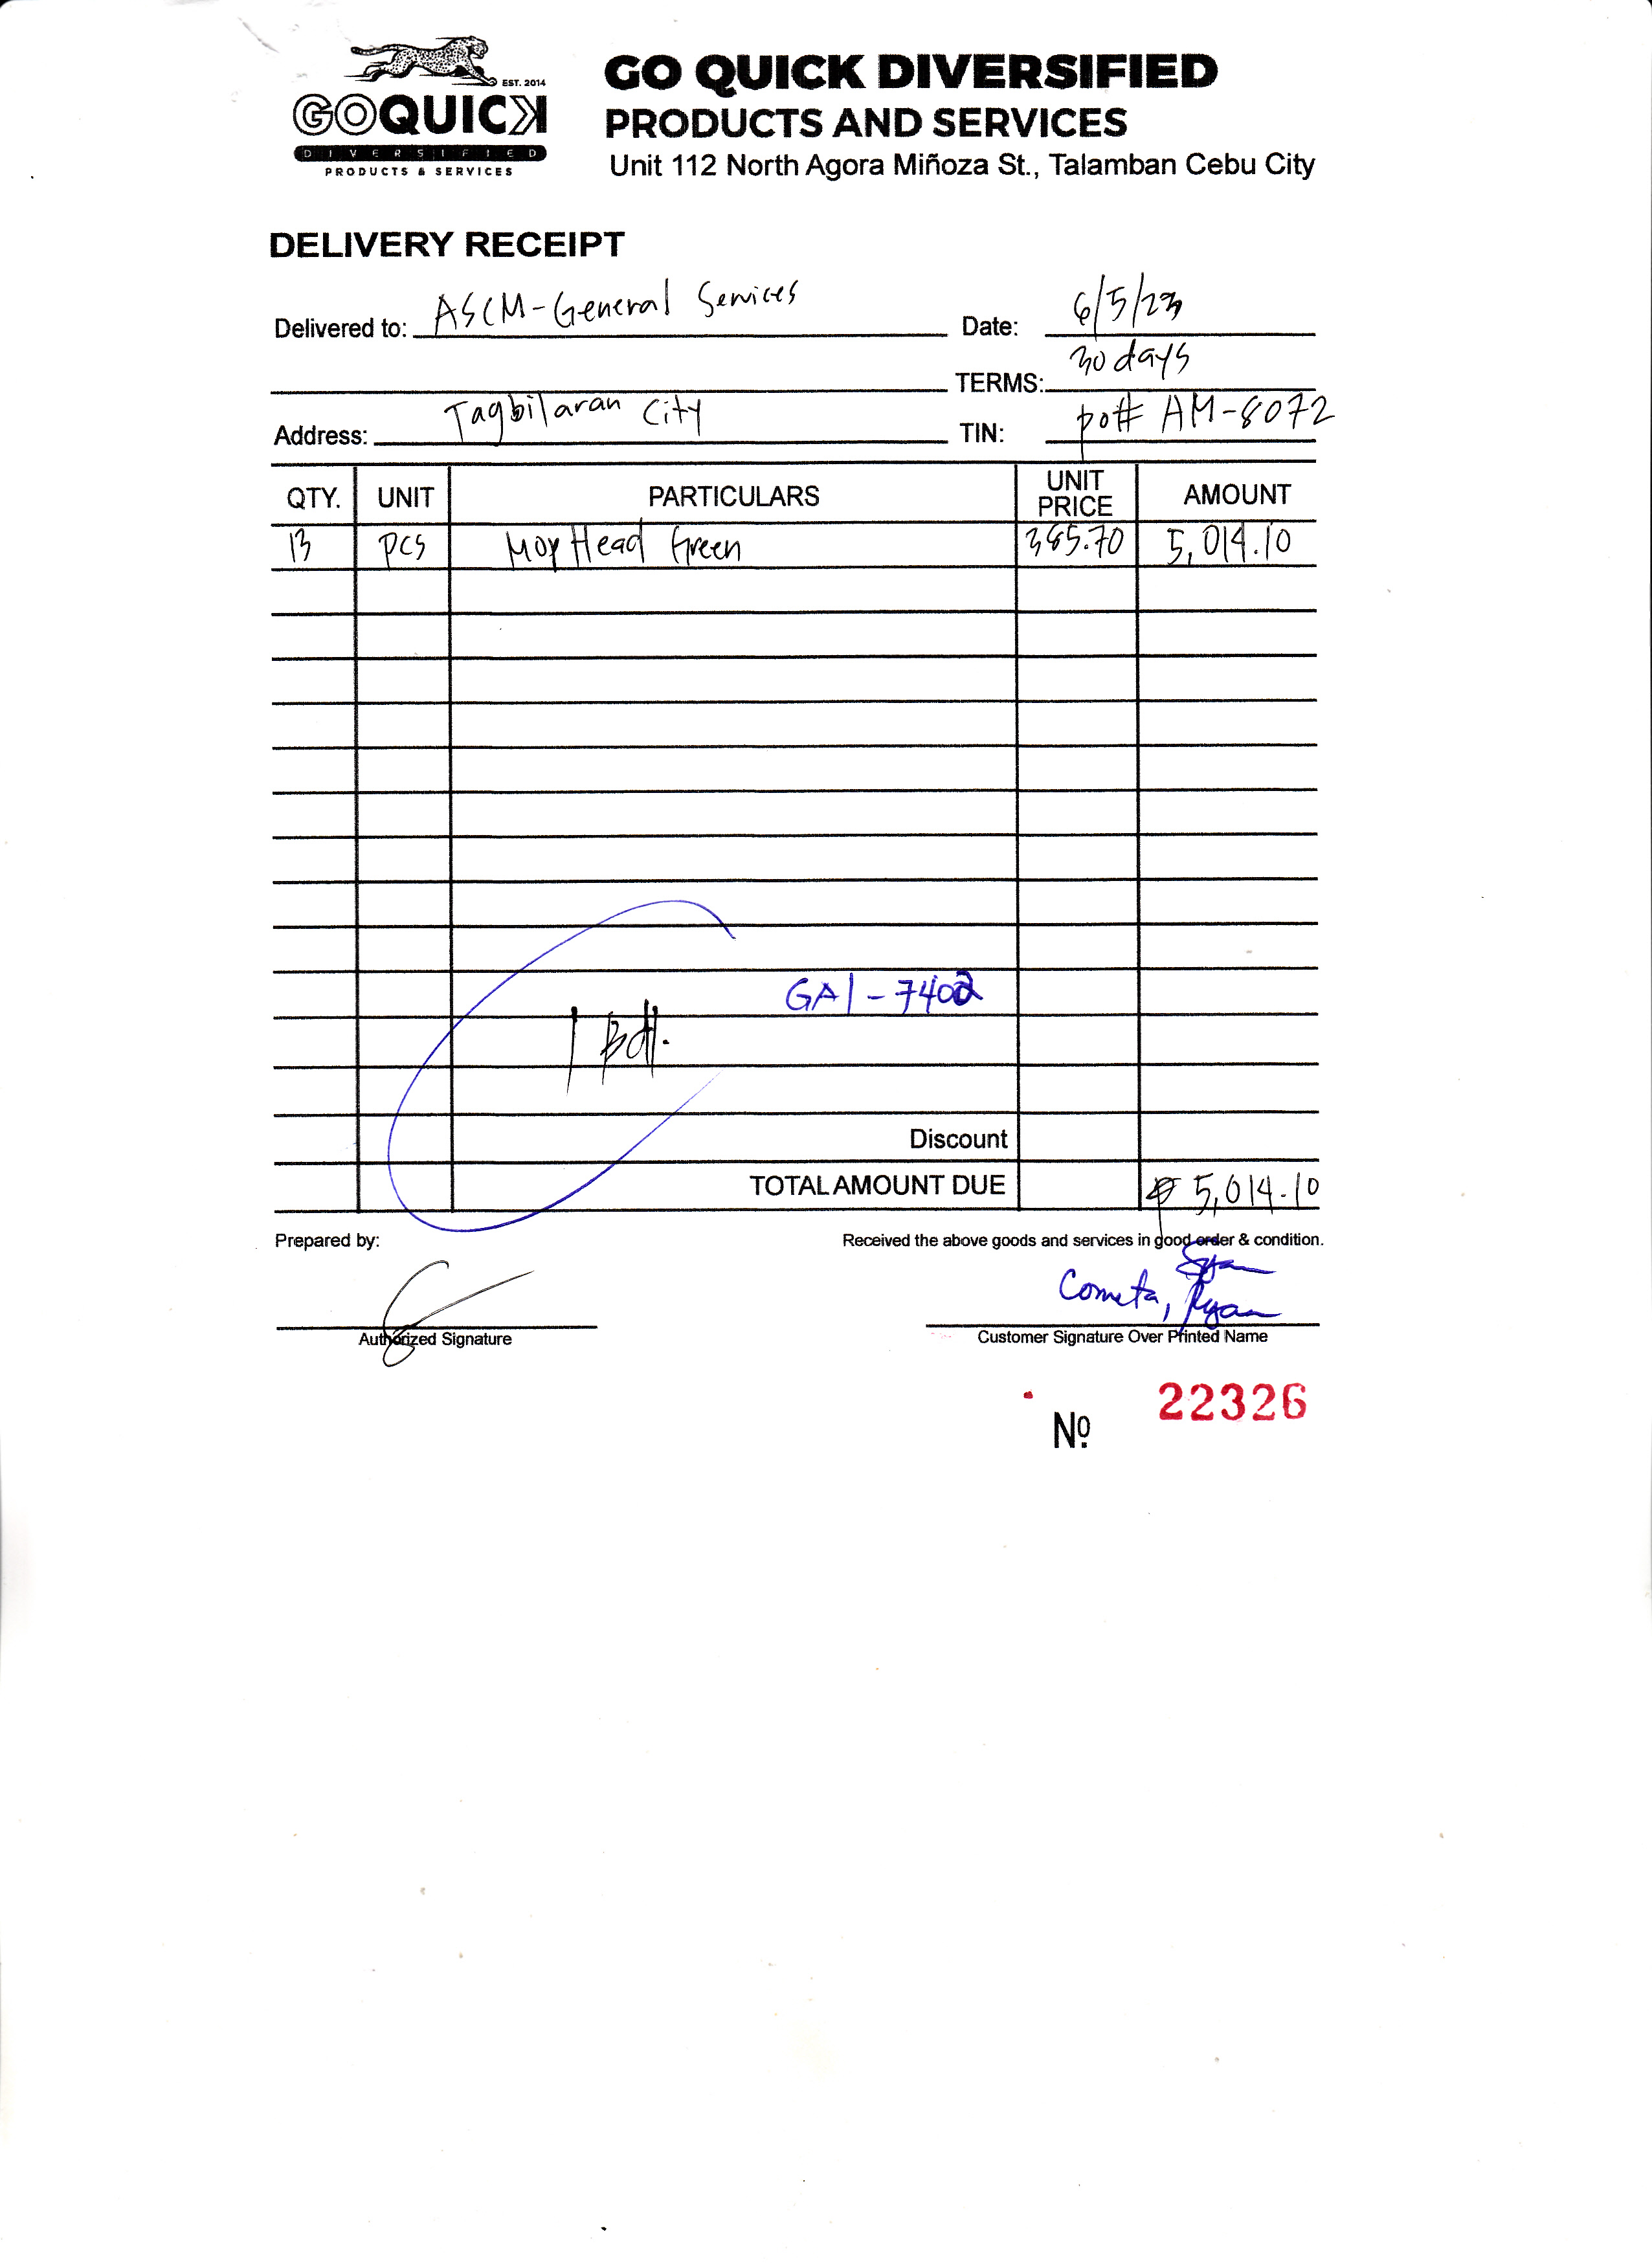 EST. 2014
GOQUICK
DIVERSIFIED
PRODUCTS & SERVICES
GO QUICK DIVERSIFIED
PRODUCTS AND SERVICES
Unit 112 North Agora Miñoza St., Talamban Cebu City
DELIVERY RECEIPT
Delivered to: ASCM-General Services Date: 6/5/23
TERMS: 30 days
Address: Tagbilaran City TIN: po# AM-8072
QTY. UNIT PARTICULARS UNIT PRICE AMOUNT
13 pcs Mop Head Green 385.70 5,014.10
GA1-7402
1 Bdl.
Discount
TOTAL AMOUNT DUE ₱ 5,014.10
Prepared by: Received the above goods and services in good order & condition.
Cometa, Ryan
Authorized Signature Customer Signature Over Printed Name
Nº 22326